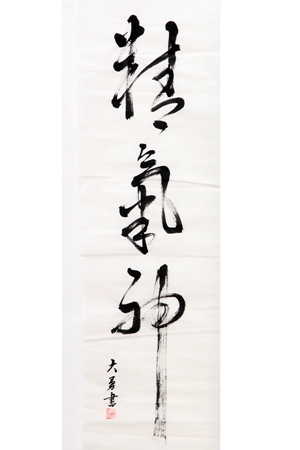 精氣神
大勇書